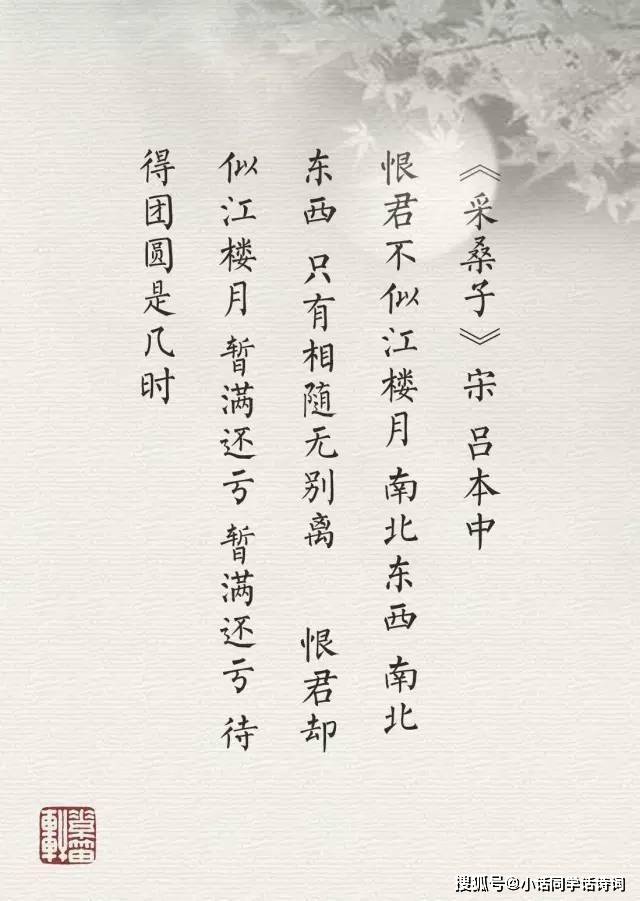 《采桑子》宋 吕本中
恨君不似江楼月 南北东西 南北
东西 只有相随无别离 恨君却
似江楼月 暂满还亏 暂满还亏 待
得团圆是几时
搜狐号@小话同学话诗词